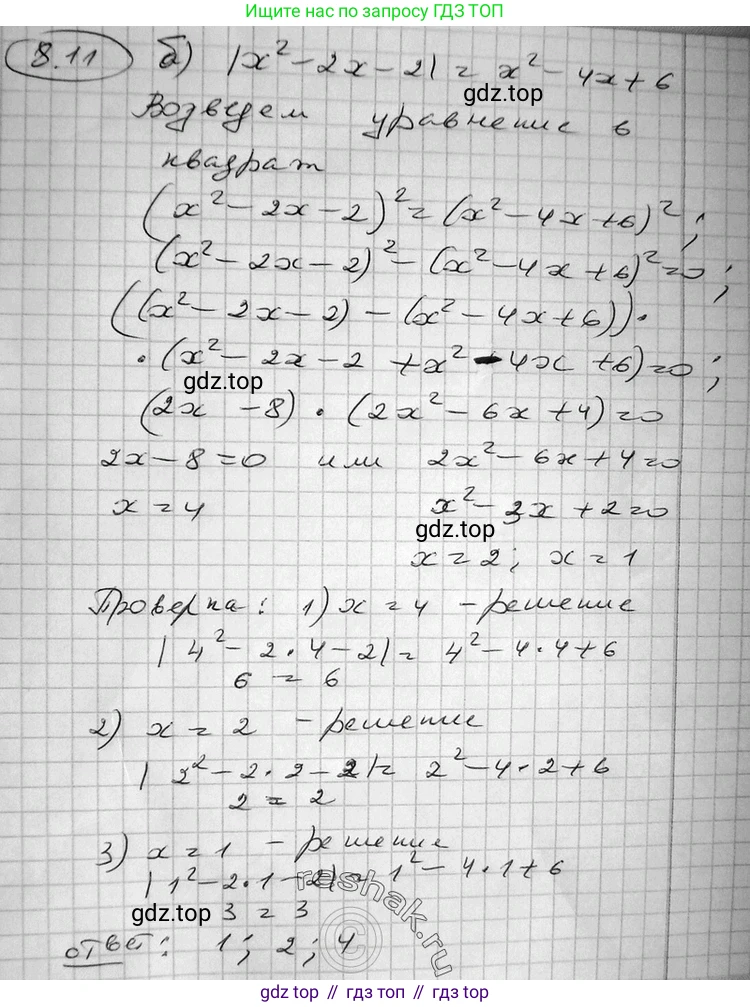 Ищите нас по запросу ГДЗ ТОП
8.11 б) |x² - 2x - 2| = x² - 4x + 6
gdz.top
Возведем уравнение в
квадрат
(x² - 2x - 2)² = (x² - 4x + 6)²;
(x² - 2x - 2)² - (x² - 4x + 6)² = 0;
((x² - 2x - 2) - (x² - 4x + 6)) ·
· (x² - 2x - 2 + x² - 4x + 6) = 0;
gdz.top
(2x - 8) · (2x² - 6x + 4) = 0
2x - 8 = 0 или 2x² - 6x + 4 = 0
x = 4 x² - 3x + 2 = 0
gdz.top
x = 2; x = 1
Проверка: 1) x = 4 - решение
|4² - 2·4 - 2| = 4² - 4·4 + 6
6 = 6
2) x = 2 - решение
|2² - 2·2 - 2| = 2² - 4·2 + 6
2 = 2
3) x = 1 - решение
|1² - 2·1 - 2| = 1² - 4·1 + 6
gdz.top 3 = 3
reshak.ru
©
ответ: 1; 2; 4
gdz.top // гдз.топ // гдз.top